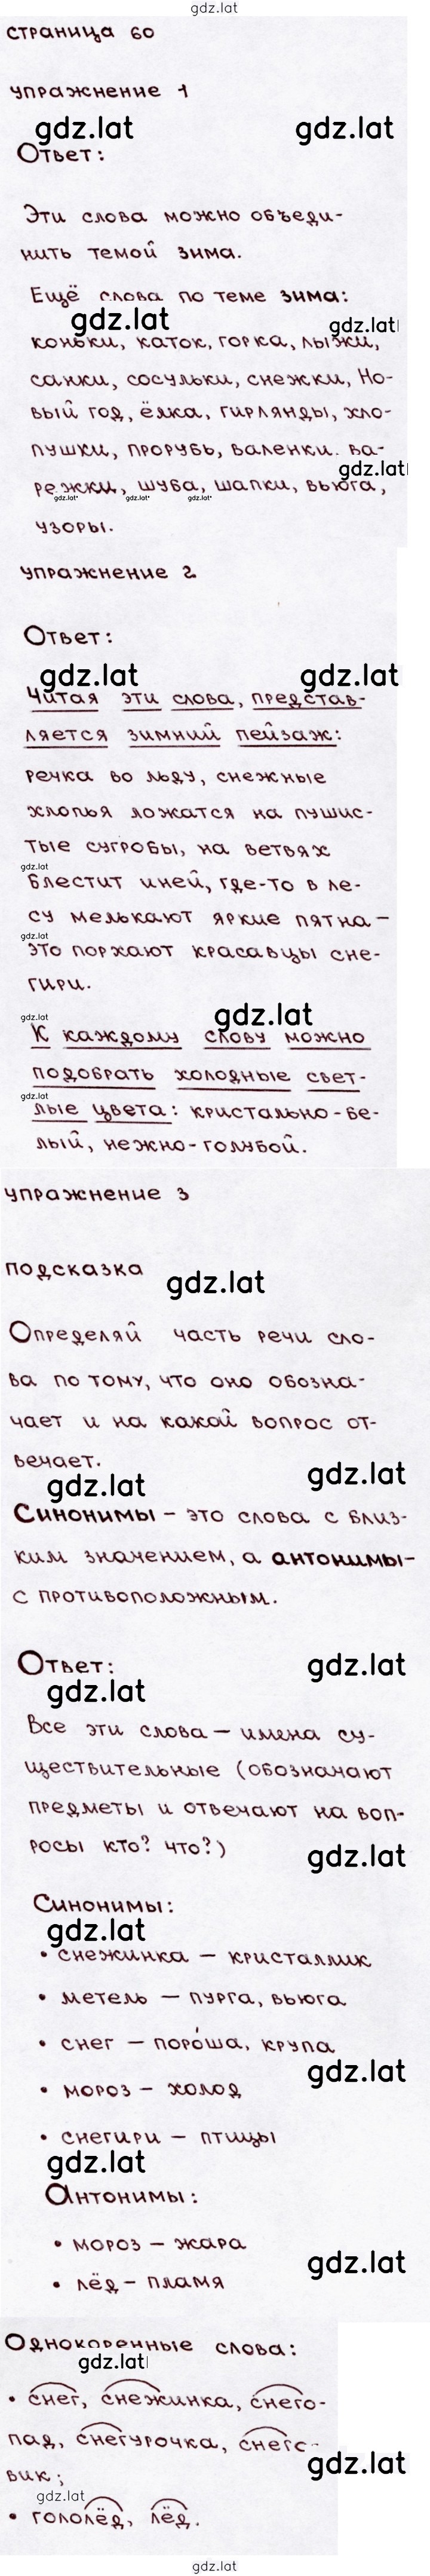 gdz.lat
страница 60
упражнение 1
gdz.lat gdz.lat
Ответ:
Эти слова можно объеди-
нить темой зима.
Ещё слова по теме зима:
gdz.lat gdz.lat
коньки, каток, горка, лыжи,
санки, сосульки, снежки, Но-
вый год, ёлка, гирлянды, хло-
пушки, прорубь, валенки. ва-
gdz.lat
режки, шуба, шапки, вьюга,
gdz.lat gdz.lat gdz.lat
узоры.
упражнение 2
Ответ:
gdz.lat gdz.lat
Читая эти слова, представ-
ляется зимний пейзаж:
речка во льду, снежные
хлопья ложатся на пушис-
тые сугробы, на ветвях
gdz.lat
блестит иней, где-то в ле-
су мелькают яркие пятна –
gdz.lat
это порхают красавцы сне-
гири.
gdz.lat gdz.lat
К каждому слову можно
подобрать холодные свет-
gdz.lat
лые цвета: кристально-бе-
лый, нежно-голубой.
упражнение 3
подсказка
gdz.lat
Определяй часть речи сло-
ва по тому, что оно обозна-
чает и на какой вопрос от-
вечает.
gdz.lat gdz.lat
Синонимы – это слова с близ-
ким значением, а антонимы –
с противоположным.
Ответ:
gdz.lat gdz.lat
Все эти слова – имена су-
ществительные (обозначают
предметы и отвечают на воп-
росы кто? что?)
gdz.lat
Синонимы:
gdz.lat
• снежинка – кристаллик
• метель – пурга, вьюга
• снег – поро́ша, крупа
gdz.lat
• мороз – холод
• снегири – птицы
gdz.lat
Антонимы:
• мороз – жара
gdz.lat
• лёд – пламя
Однокоренные слова:
gdz.lat
• снег, снежинка, снего-
пад, снегурочка, снего-
gdz.lat
вик;
gdz.lat
• гололёд, лёд.
gdz.lat